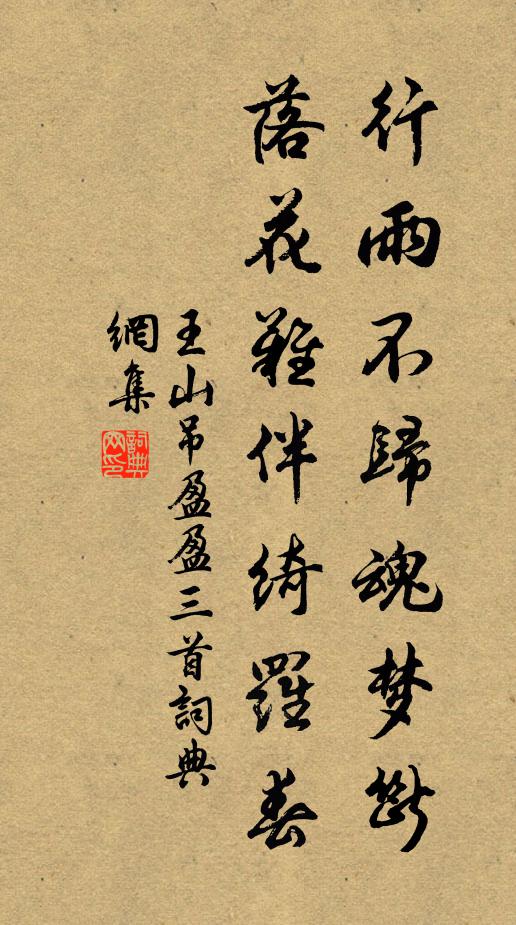 行雨不歸魂梦斷
落花難伴綺羅春
王山吊盈盈三首詞典
網集
詞典
网印